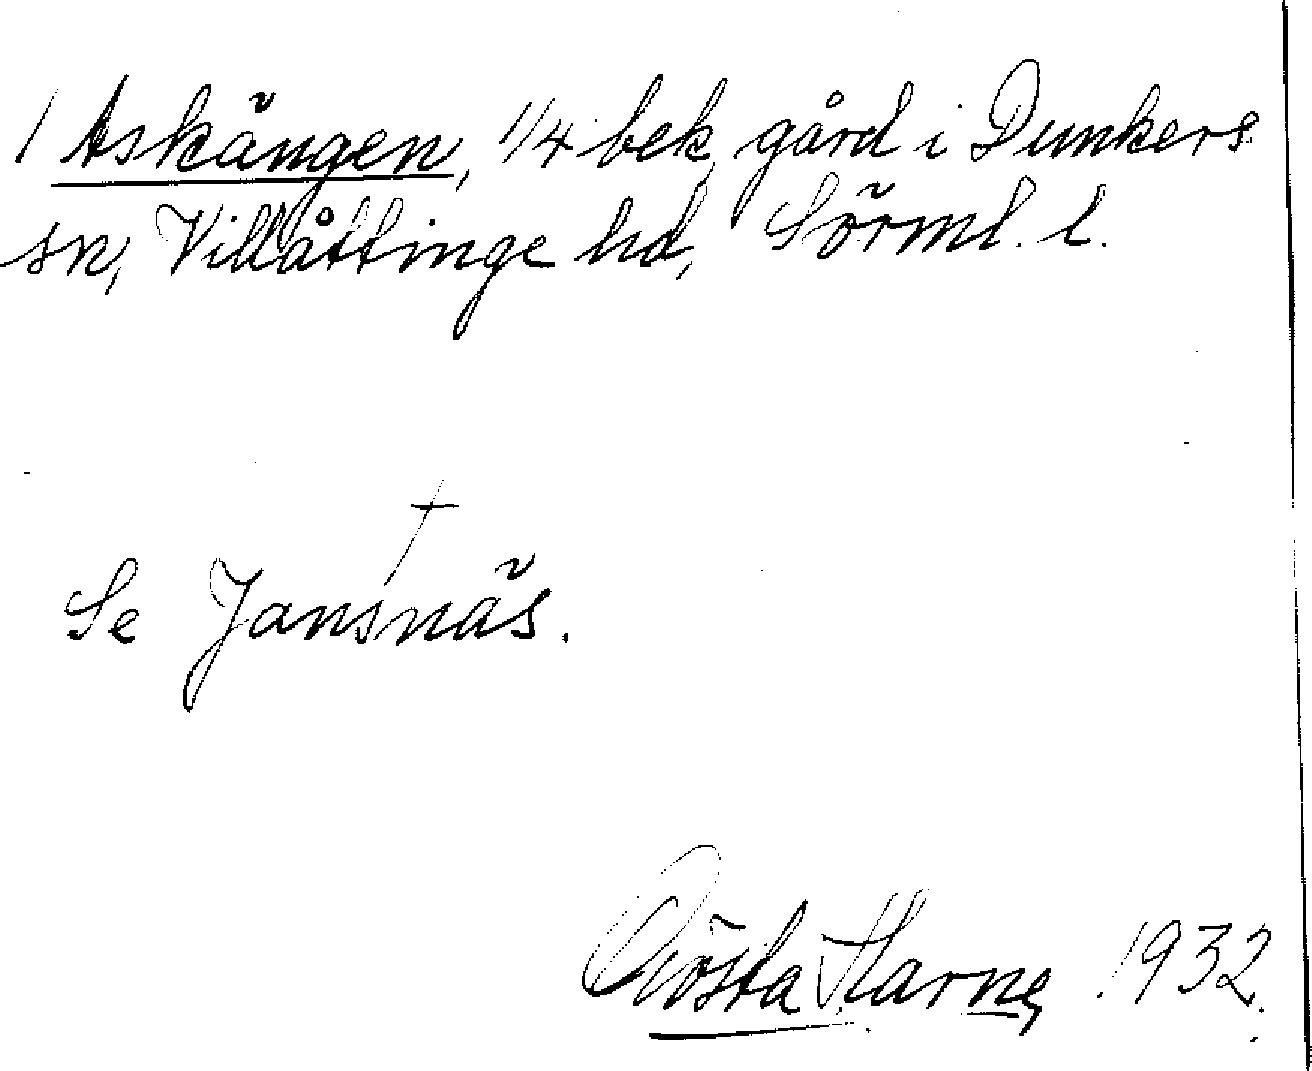 / Askängen, 1/4 bek. gård i Dunkers
sn, Villåttinge hd, Sörml. l.
†
Se Jansnäs.
Gösta Harne, 1932.